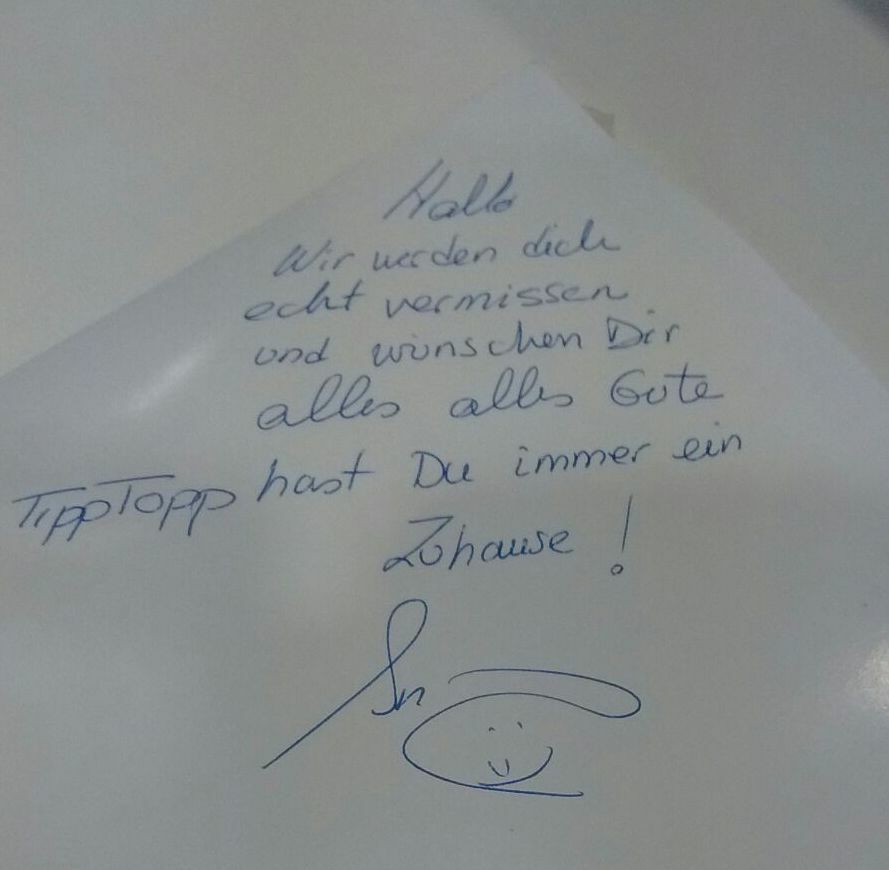 Hallo
Wir werden dich
echt vermissen
und wünschen Dir
alles alles Gute
TippTopp hast Du immer ein
Zuhause !